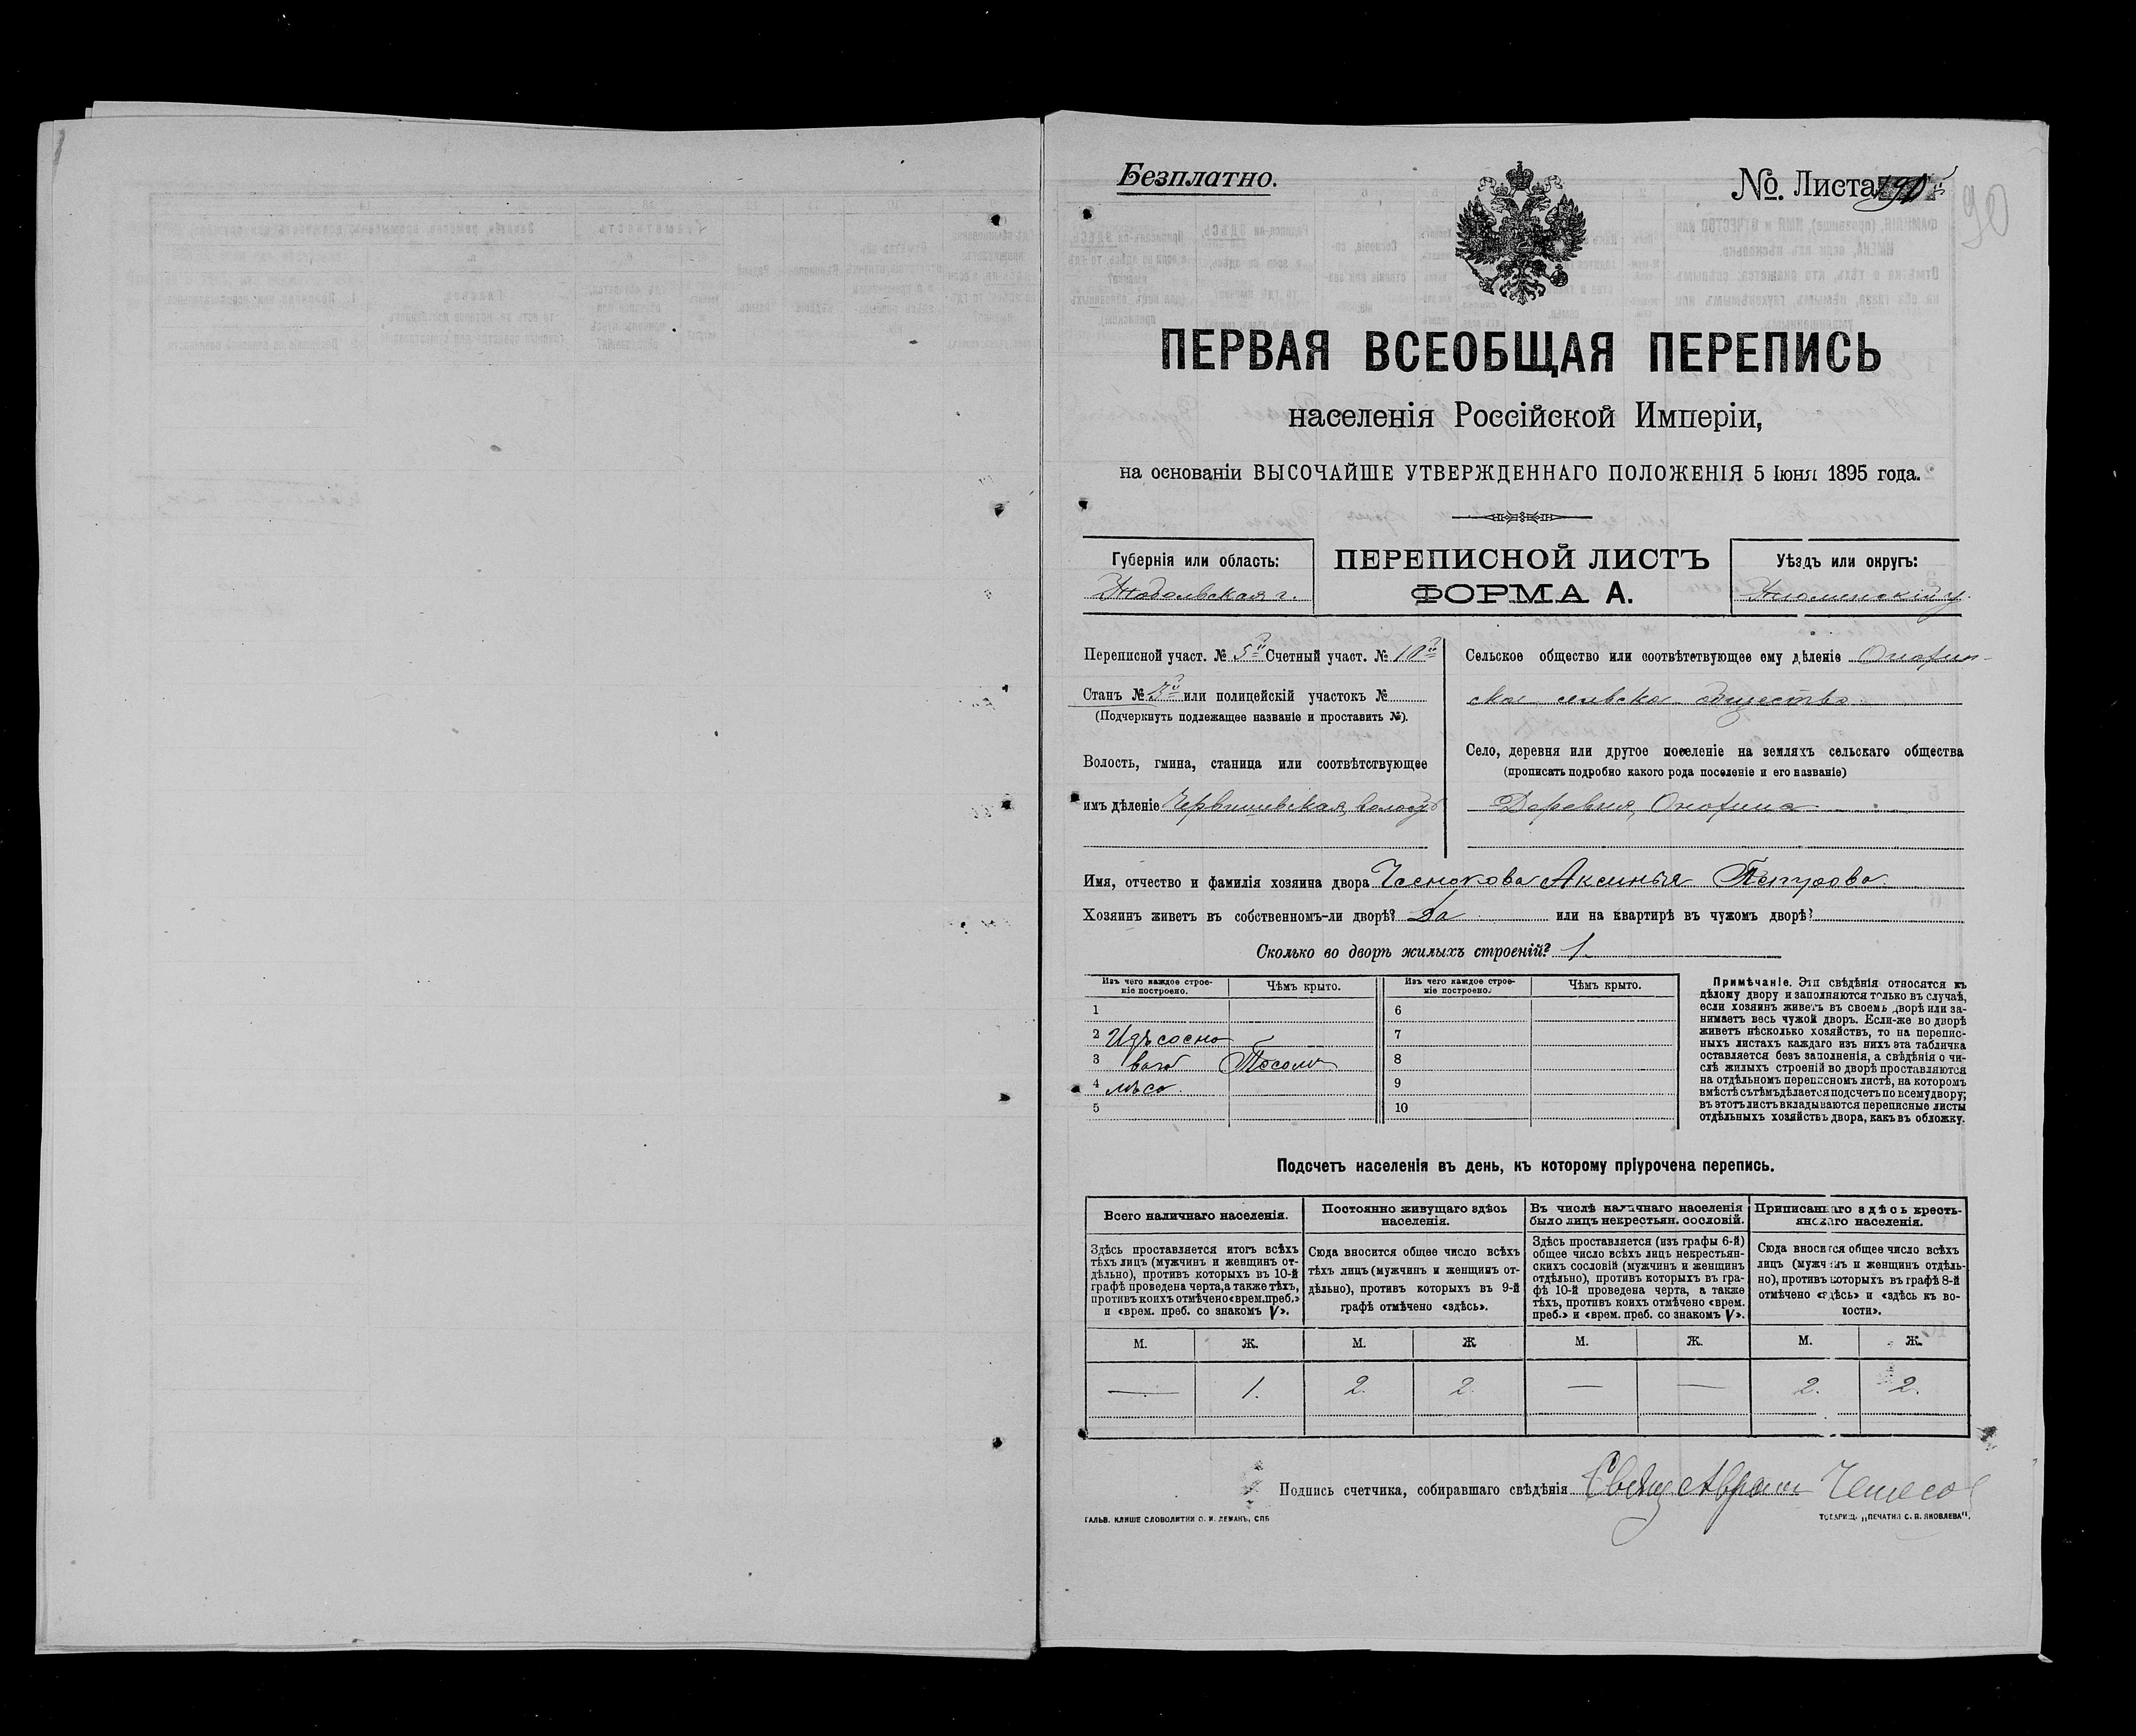 Безплатно.
№. Листа 190й
90
ПЕРВАЯ ВСЕОБЩАЯ ПЕРЕПИСЬ
населенія Россійской Имперіи,
на основаніи ВЫСОЧАЙШЕ УТВЕРЖДЕННАГО ПОЛОЖЕНІЯ 5 Іюня 1895 года.
Губернія или область:
Тобольская г.
ПЕРЕПИСНОЙ ЛИСТЪ
ФОРМА А.
Уѣздъ или округъ:
Тюменскій у.
Переписной участ. № 5й Счетный участ. № 10й
Станъ № или полицейскій участокъ №
(Подчеркнуть подлежащее названіе и проставить №).
Волость, гмина, станица или соотвѣтствующее
имъ дѣленіе Червишевская волость
Сельское общество или соотвѣтствующее ему дѣленіе Онохин-
ское сельско общество
Село, деревня или другое поселеніе на земляхъ сельскаго общества
(прописать подробно какого рода поселеніе и его названіе)
Деревня Онохина
Имя, отчество и фамилія хозяина двора Чеснокова Аксинья Петрова
Хозяинъ живетъ въ собственномъ-ли дворѣ? Да или на квартирѣ въ чужомъ дворѣ?
Сколько во дворѣ жилыхъ строеній? 1
Изъ чего каждое строе-
ніе построено.
Чѣмъ крыто.
Изъ чего каждое строе-
ніе построено.
Чѣмъ крыто.
1 6
2 Изъ сосно 7
3 ваго Тесомъ 8
4 лѣса. 9
5 10
Примѣчаніе. Эти свѣдѣнія относятся къ
цѣлому двору и заполняются только въ случаѣ,
если хозяинъ живетъ въ своемъ дворѣ или за-
нимаетъ весь чужой дворъ. Если-же во дворѣ
живетъ нѣсколько хозяйствъ, то на перепис-
ныхъ листахъ каждаго изъ нихъ эта табличка
оставляется безъ заполненія, а свѣдѣнія о чи-
слѣ жилыхъ строеній во дворѣ проставляются
на отдѣльномъ переписномъ листѣ, на которомъ
вмѣстѣ съ тѣмъ дѣлается подсчетъ по всему двору;
въ этотъ листъ вкладываются переписные листы
отдѣльныхъ хозяйствъ двора, какъ въ обложку.
Подсчетъ населенія въ день, къ которому пріурочена перепись.
Всего наличнаго населенія.
Здѣсь проставляется итогъ всѣхъ
тѣхъ лицъ (мужчинъ и женщинъ от-
дѣльно), противъ которыхъ въ 10-й
графѣ проведена черта, а также тѣхъ,
противъ коихъ отмѣчено «врем. преб.»
и «врем. преб. со знакомъ V».
Постоянно живущаго здѣсь
населенія.
Сюда вносится общее число всѣхъ
тѣхъ лицъ (мужчинъ и женщинъ от-
дѣльно), противъ которыхъ въ 9-й
графѣ отмѣчено «здѣсь».
Въ числѣ наличнаго населенія
было лицъ некрестьян. сословій.
Здѣсь проставляется (изъ графы 6-й)
общее число всѣхъ лицъ некрестьян-
скихъ сословій (мужчинъ и женщинъ
отдѣльно), противъ которыхъ въ гра-
фѣ 10-й проведена черта, а также
тѣхъ, противъ коихъ отмѣчено «врем.
преб.» и «врем. преб. со знакомъ V».
Приписаннаго здѣсь кресть-
янскаго населенія.
Сюда вносится общее число всѣхъ
лицъ (мужчинъ и женщинъ отдѣль-
но), противъ которыхъ въ графѣ 8-й
отмѣчено «здѣсь» и «здѣсь къ во-
лости».
М. Ж. М. Ж М. Ж. М. Ж.
— 1. 2. 2. — — 2. 2.
Подпись счетчика, собиравшаго свѣдѣнія
ГАЛЬВ. КЛИШЕ СЛОВОЛИТНИ О. И. ЛЕМАНЪ, СПБ
ТОВАРИЩ. „ПЕЧАТНЯ С. П. ЯКОВЛЕВА".